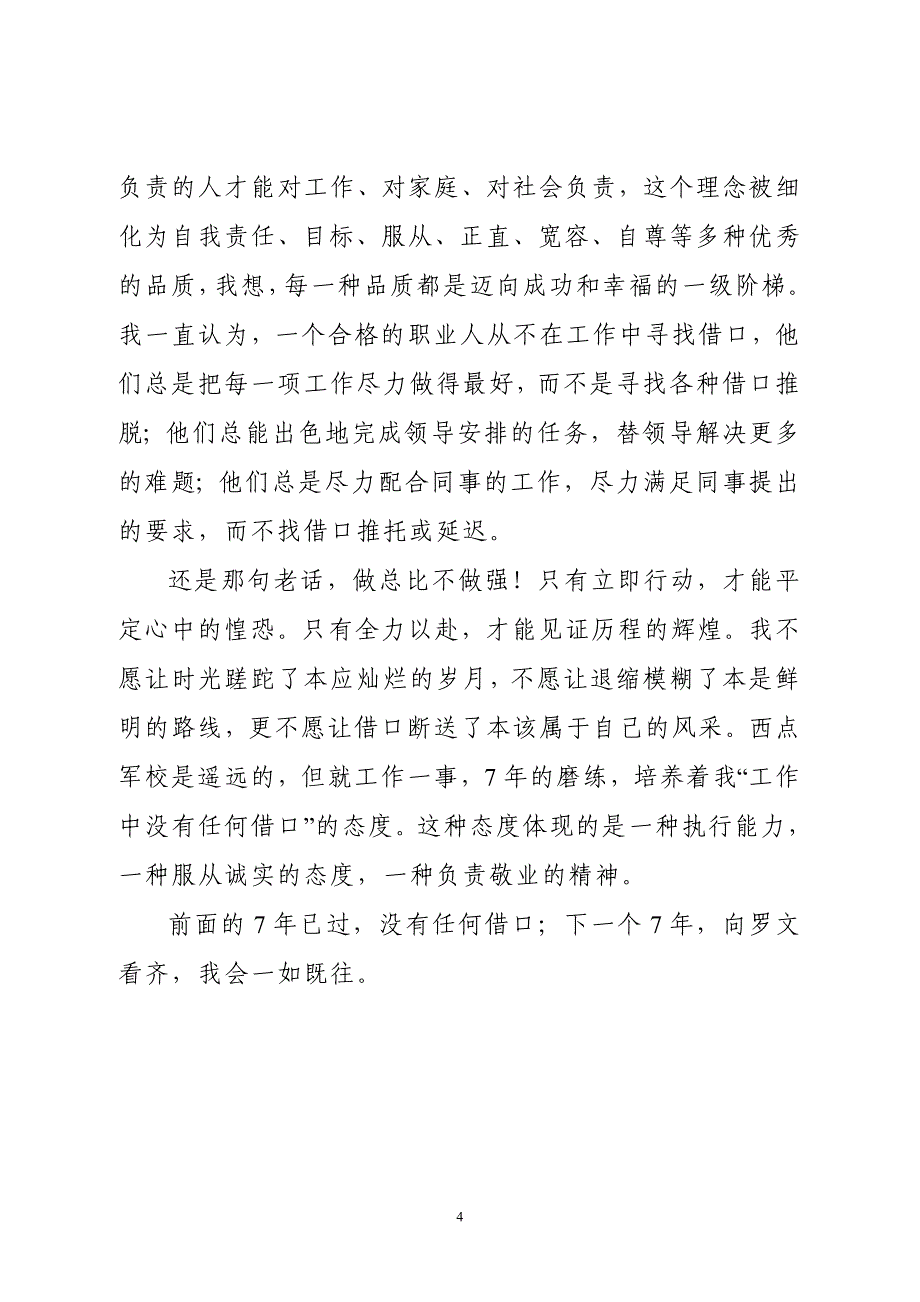 负责的人才能对工作、对家庭、对社会负责，这个理念被细
化为自我责任、目标、服从、正直、宽容、自尊等多种优秀
的品质，我想，每一种品质都是迈向成功和幸福的一级阶梯。
我一直认为，一个合格的职业人从不在工作中寻找借口，他
们总是把每一项工作尽力做得最好，而不是寻找各种借口推
脱；他们总能出色地完成领导安排的任务，替领导解决更多
的难题；他们总是尽力配合同事的工作，尽力满足同事提出
的要求，而不找借口推托或延迟。
还是那句老话，做总比不做强！只有立即行动，才能平
定心中的惶恐。只有全力以赴，才能见证历程的辉煌。我不
愿让时光蹉跎了本应灿烂的岁月，不愿让退缩模糊了本是鲜
明的路线，更不愿让借口断送了本该属于自己的风采。西点
军校是遥远的，但就工作一事，7年的磨练，培养着我“工作
中没有任何借口”的态度。这种态度体现的是一种执行能力，
一种服从诚实的态度，一种负责敬业的精神。
前面的 7 年已过，没有任何借口；下一个 7 年，向罗文
看齐，我会一如既往。
4